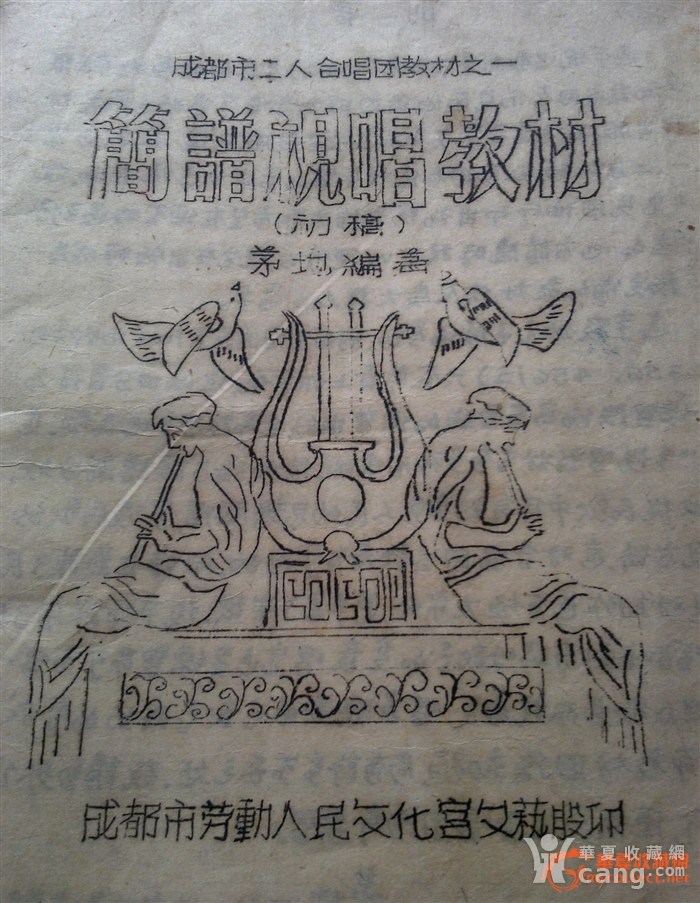 成都市工人合唱团教材之一
簡譜視唱教材
（初稿）
茅地編著
成都市劳動人民文化宮文艺股印
華夏收藏網
cang.com